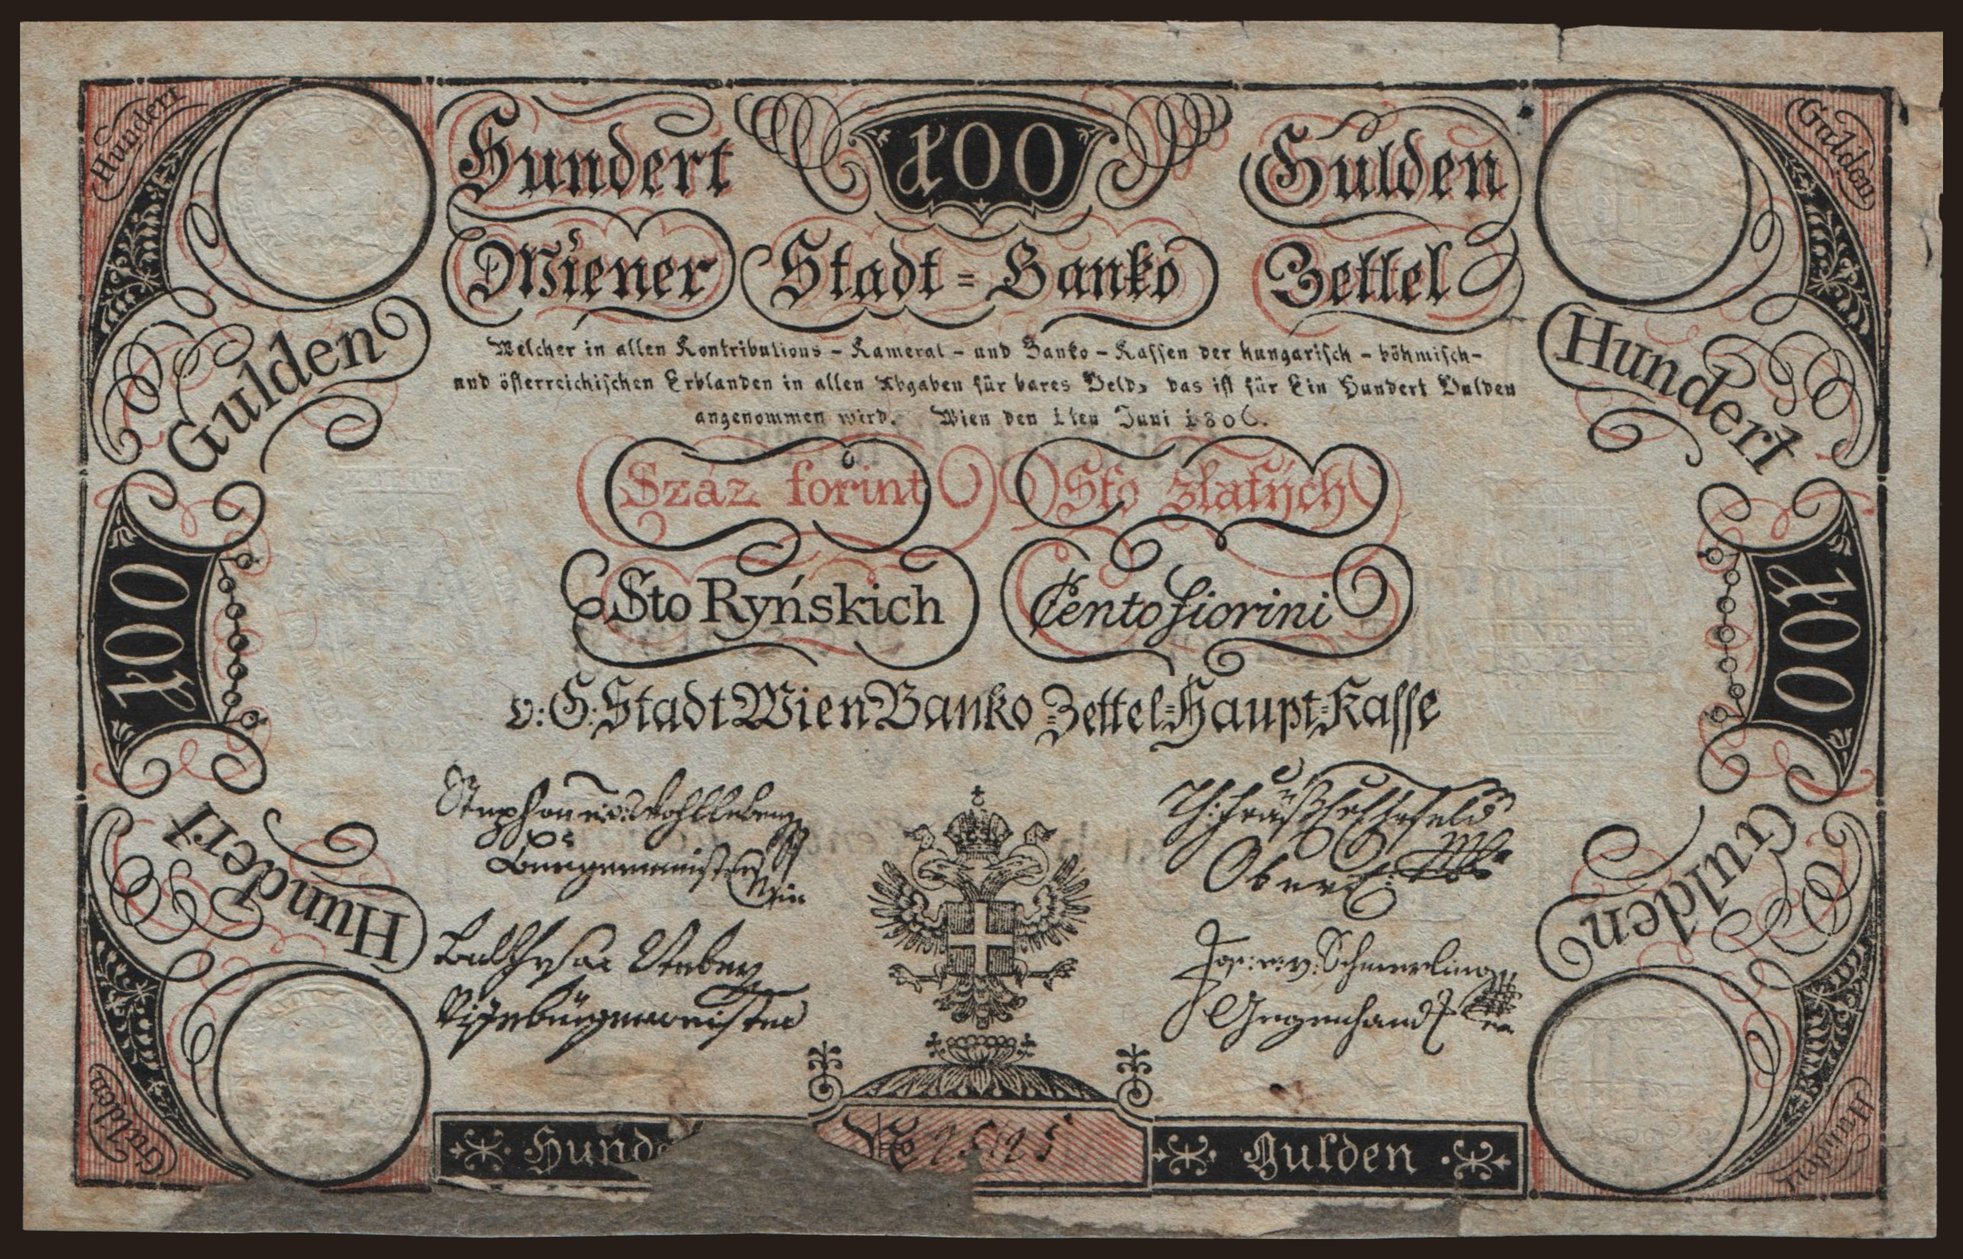 Hundert 100 Gulden
Wiener Stadt=Banko Zettel
Welcher in allen Kontributions- Kameral- und Banko-Kassen der hungarisch-böhmisch-
und österreichischen Erblanden in allen Abgaben für bares Geld, das ist für Ein Hundert Gulden
angenommen wird. Wien den 1ten Juni 1806.
Száz forint Sto zlatých
Sto Ryńskich Cento fiorini
v: G: Stadt Wien Banko=Zettel=Haupt=Kasse
Hundert
Gulden
Gulden
Hundert
100
100
Hundert
Gulden
Gulden
Hundert
Stephan
Burgermeister
Vizeburgermeister
Jos: v: Schmerling
Gegenhand
Gulden